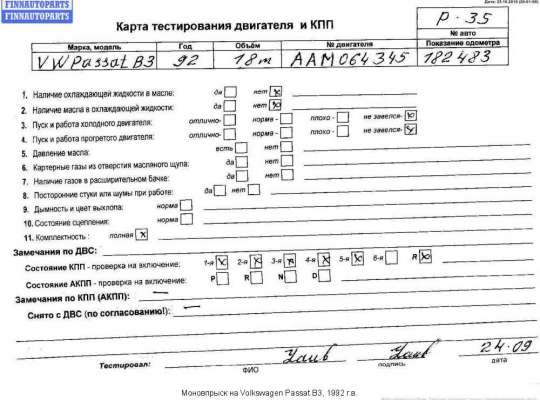 FINNAUTOPARTS
FINNAUTOPARTS
Карта тестирования двигателя и КПП
P-35
№ авто
Марка, модель Год Объём № двигателя Показание одометра
VW Passat B3 92 18m AAM064345 182483
1. Наличие охлаждающей жидкости в масле: да нет x
2. Наличие масла в охлаждающей жидкости: да нет x
3. Пуск и работа холодного двигателя: отлично- норма - плохо - не завелся- x
4. Пуск и работа прогретого двигателя: отлично- норма - плохо - не завелся- x
5. Давление масла: есть нет -
6. Картерные газы из отверстия масляного щупа: да нет -
7. Наличие газов в расширительном бачке: да нет -
8. Посторонние стуки или шумы при работе: да нет -
9. Дымность и цвет выхлопа: норма
10. Состояние сцепления: норма
11. Комплектность : полная x
Замечания по ДВС:
Состояние КПП - проверка на включение: 1-я x 2-я x 3-я x 4-я x 5-я x 6-я R x
Состояние АКПП - проверка на включение: P R N D
Замечания по КПП (АКПП): —
Снято с ДВС (по согласованию!): —
Тестировал: 24.09
ФИО подпись дата
Моновпрыск на Volkswagen Passat B3, 1992 г.в.